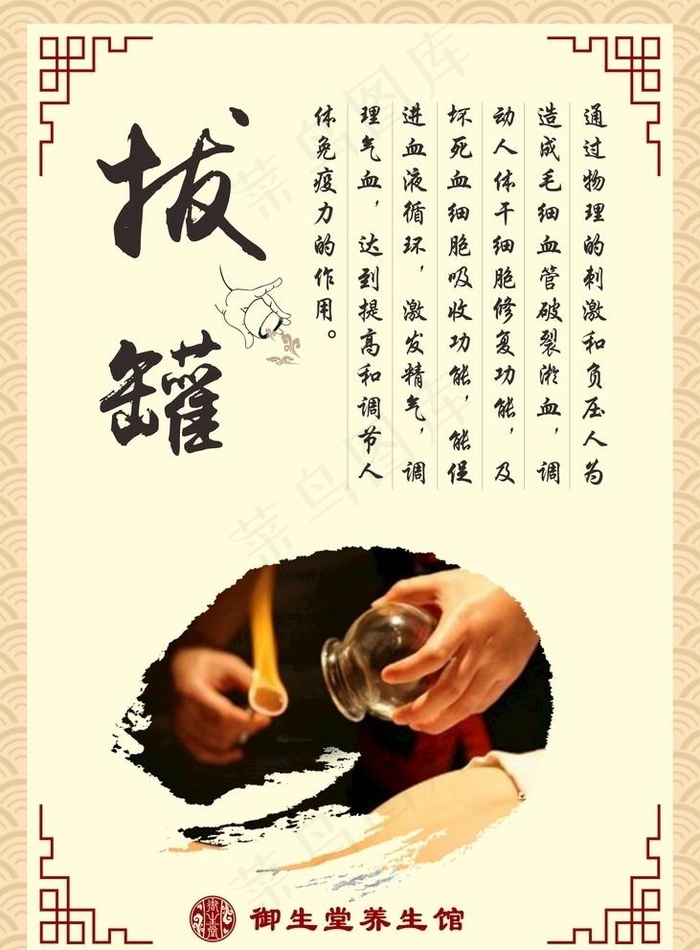 拔罐
通过物理的刺激和负压人为
造成毛细血管破裂淤血，调
动人体干细胞修复功能，及
坏死血细胞吸收功能，能促
进血液循环，激发精气，调
理气血，达到提高和调节人
体免疫力的作用。
御生堂
御生堂养生馆
菜鸟图库
菜鸟图库
菜鸟图库